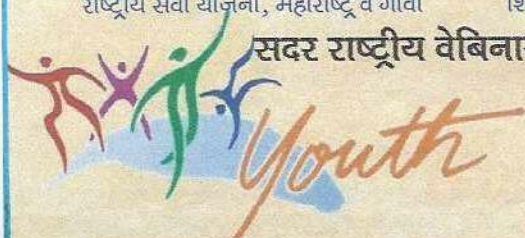 राष्ट्रीय सेवा योजना, महाराष्ट्र व गोवा
सदर राष्ट्रीय वेबिनार
Youth